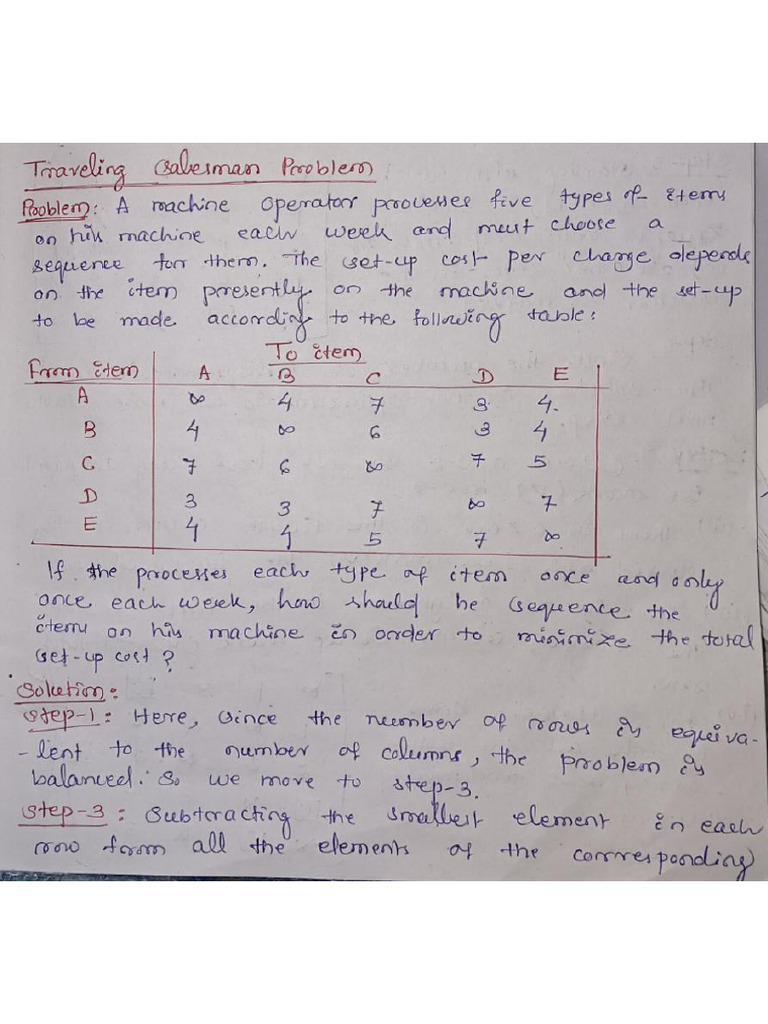 Traveling Salesman Problem
Problem: A machine operator processes five types of items
on his machine each week and must choose a
sequence for them. The set-up cost per change depends
on the item presently on the machine and the set-up
to be made according to the following table:
To item
From item A B C D E
A ∞ 4 7 3 4.
B 4 ∞ 6 3 4
C 7 6 ∞ 7 5
D 3 3 7 ∞ 7
E 4 4 5 7 ∞
If the processes each type of item once and only
once each week, how should be sequence the
items on his machine in order to minimize the total
set-up cost?
Solution:
Step-1: Here, since the number of rows is equiva-
-lent to the number of columns, the problem is
balanced. So we move to step-3.
Step-3: Subtracting the smallest element in each
row from all the elements of the corresponding